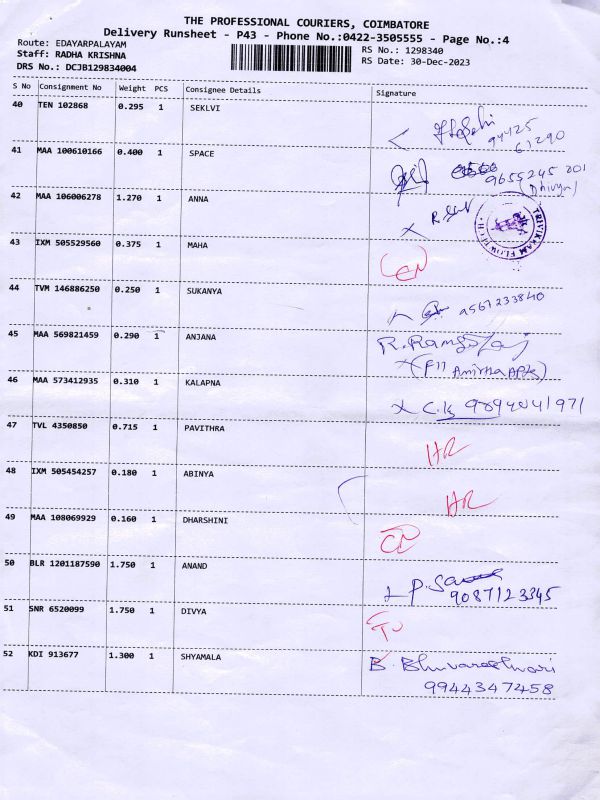 THE PROFESSIONAL COURIERS, COIMBATORE
Delivery Runsheet - P43 - Phone No.:0422-3505555 - Page No.:4
Route: EDAYARPALAYAM
RS No.: 1298340
Staff: RADHA KRISHNA
RS Date: 30-Dec-2023
DRS No.: DCJB129834004
S No Consignment No Weight PCS Consignee Details Signature
40 TEN 102868 0.295 1 SEKLVI
94425
61290
41 MAA 100610166 0.400 1 SPACE
9655245 201
(Dhivya)
42 MAA 106006278 1.270 1 ANNA
TRIVIKRAM FLOW
43 IXM 505529560 0.375 1 MAHA
44 TVM 146886250 0.250 1 SUKANYA
9567233840
45 MAA 569821459 0.290 1 ANJANA
R. Ramgoraj
(F11 Amirtha Apts)
46 MAA 573412935 0.310 1 KALAPNA
X C.K 9894041971
47 TVL 4350850 0.715 1 PAVITHRA
HR
48 IXM 505454257 0.180 1 ABINYA
HR
49 MAA 108069929 0.160 1 DHARSHINI
50 BLR 1201187590 1.750 1 ANAND
9087123345
51 SNR 6520099 1.750 1 DIVYA
52 KDI 913677 1.300 1 SHYAMALA
B. Bhuvaneshwari
9944347458